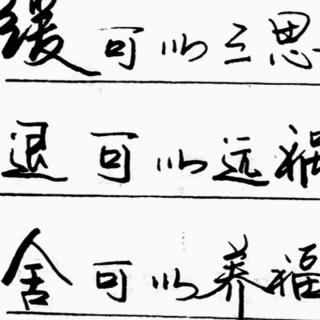 缓可以三思
退可以远祸
舍可以养福